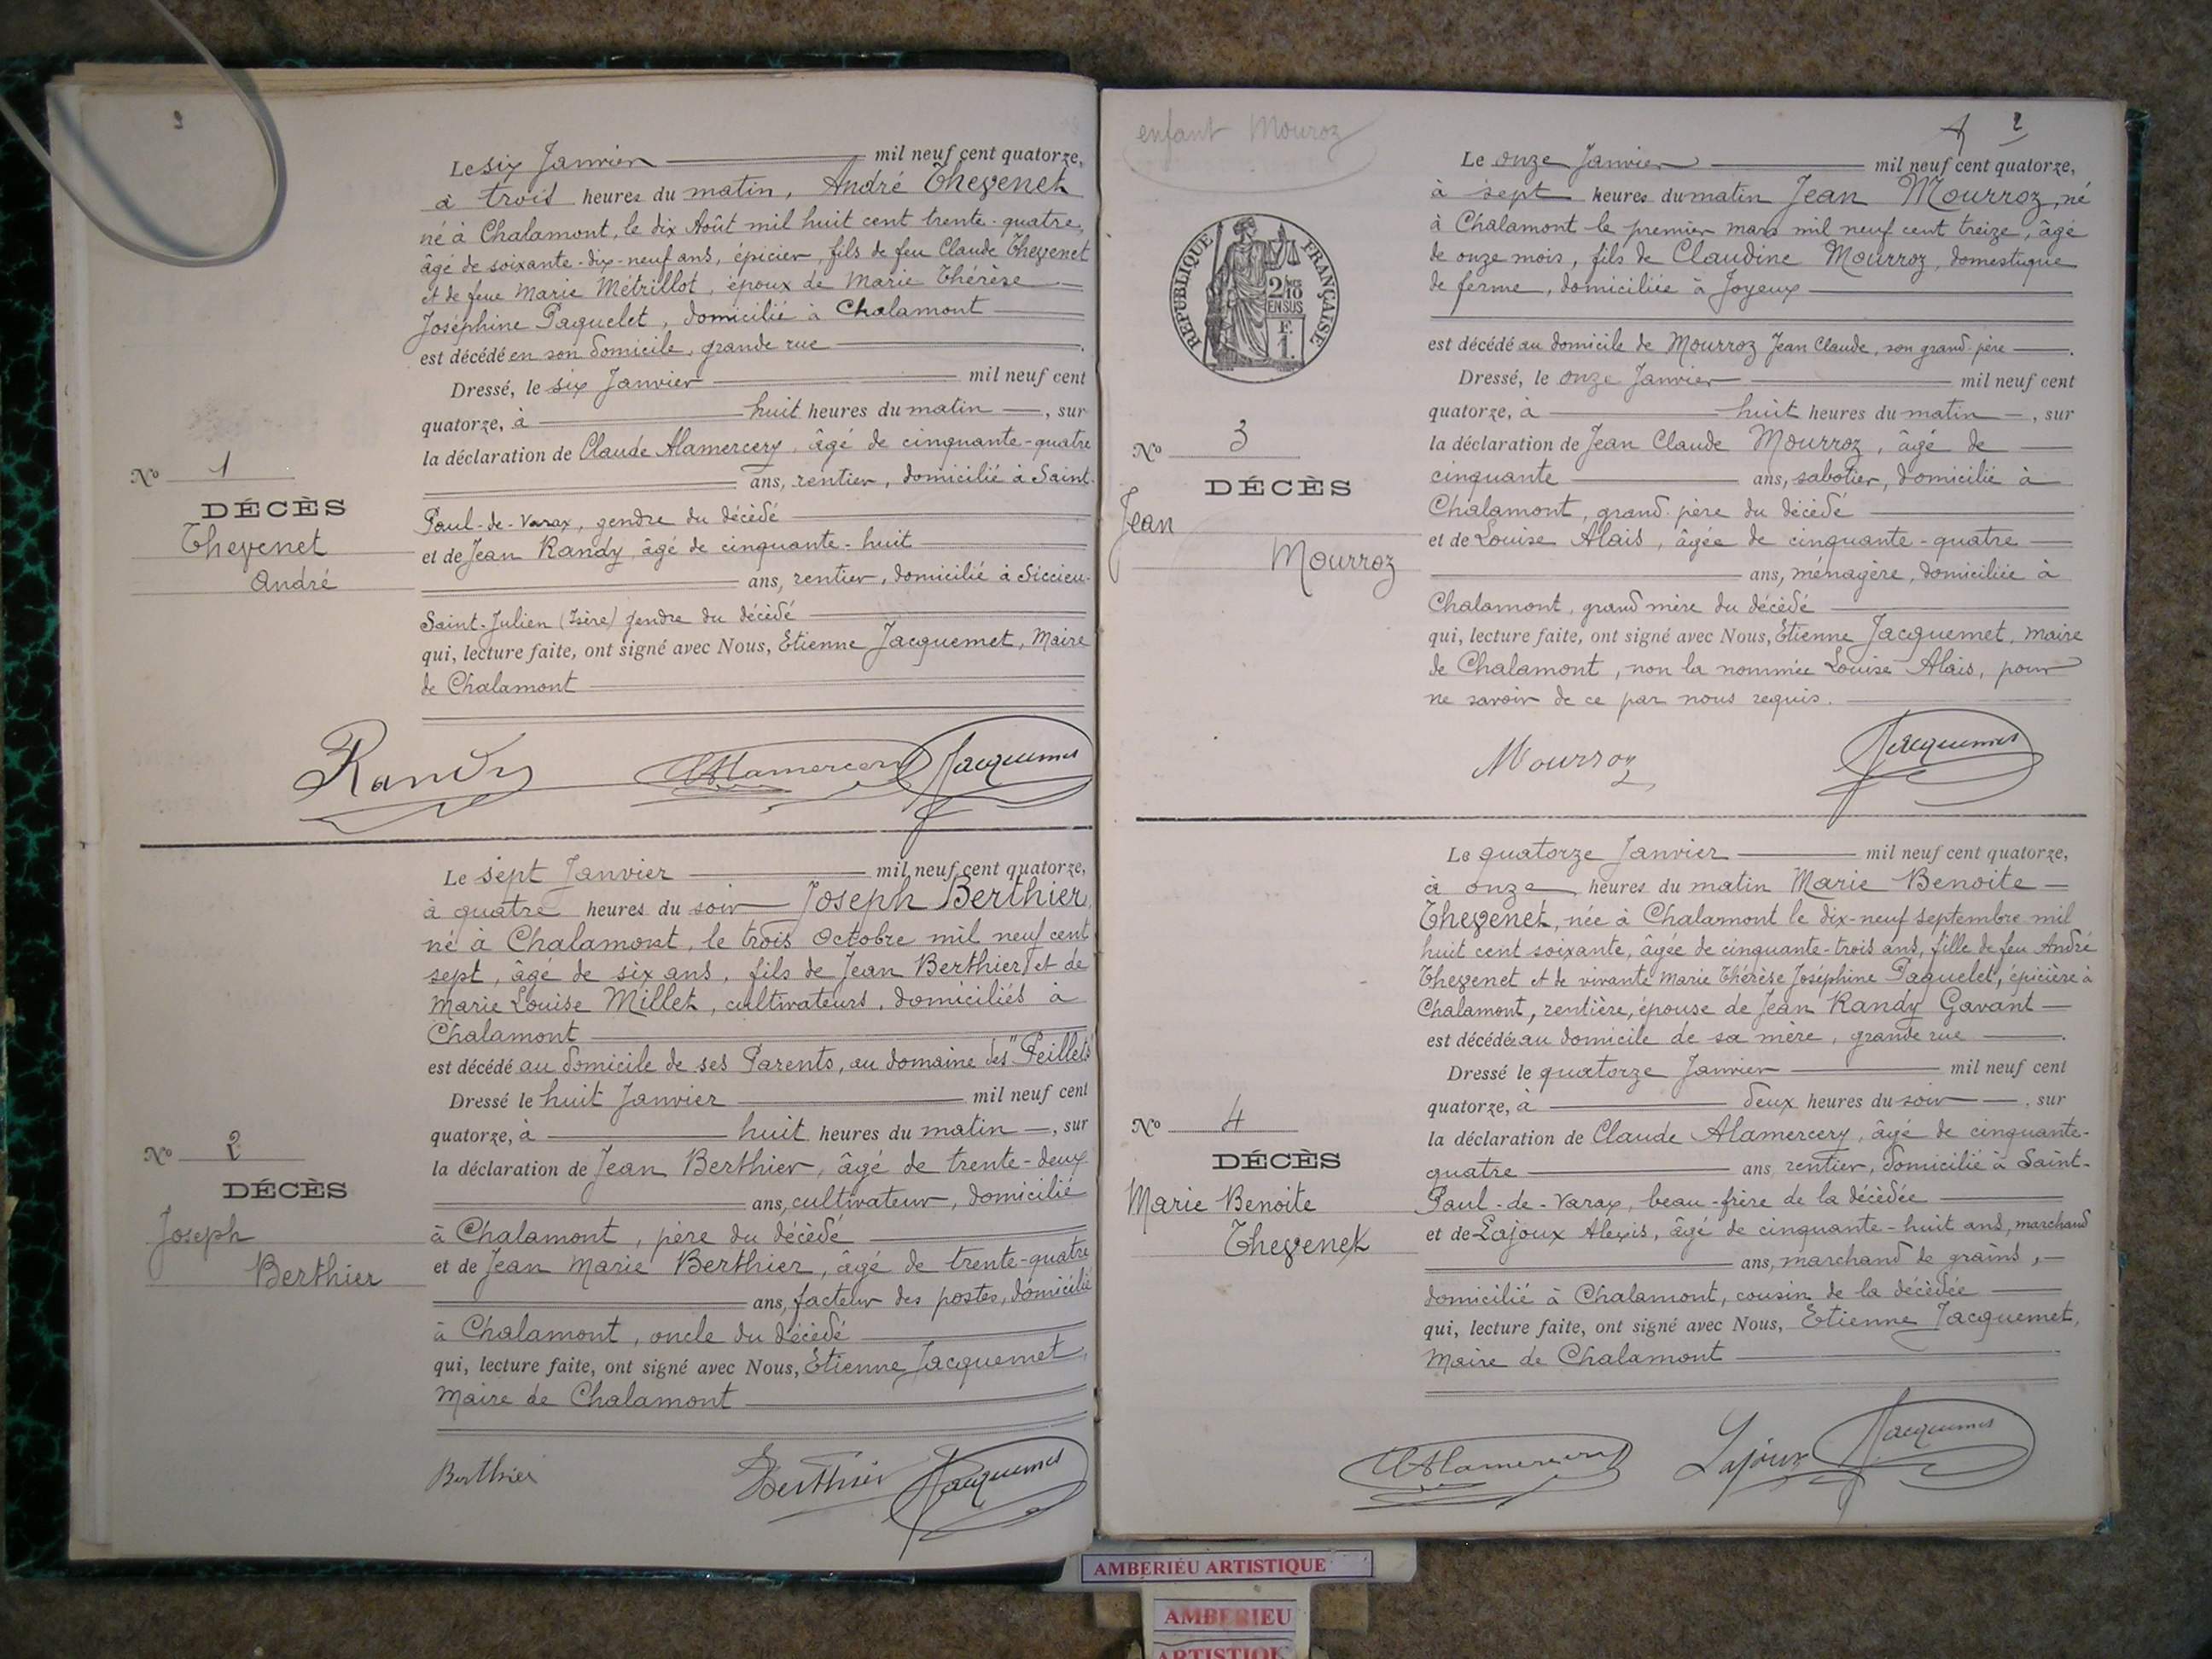 Le six Janvier mil neuf cent quatorze,
à trois heures du matin, André Thevenet
né à Chalamont, le dix Août mil huit cent trente-quatre,
âgé de soixante-dix-neuf ans, épicier, fils de feu Claude Thevenet
et de feue Marie Métrillot, époux de Marie Thérèse
Joséphine Paquelet, domicilié à Chalamont
est décédé en son domicile, grande rue
Dressé, le six Janvier mil neuf cent
quatorze, à huit heures du matin, sur
la déclaration de Claude Alamercery, âgé de cinquante-quatre
ans, rentier, domicilié à Saint-
Paul-de-Varax, gendre du décédé
et de Jean Randy, âgé de cinquante-huit
ans, rentier, domicilié à Siccieu-
Saint-Julien (Isère) gendre du décédé
qui, lecture faite, ont signé avec Nous, Etienne Jacquemet, Maire
de Chalamont
No 1
DÉCÈS
Thevenet
André
Randy Alamercery Jacquemet
Le sept Janvier mil neuf cent quatorze,
à quatre heures du soir Joseph Berthier,
né à Chalamont, le trois Octobre mil neuf cent
sept, âgé de six ans, fils de Jean Berthier et de
Marie Louise Millet, cultivateurs, domiciliés à
Chalamont
est décédé au domicile de ses Parents, au domaine des "Peillets"
Dressé le huit Janvier mil neuf cent
quatorze, à huit heures du matin, sur
la déclaration de Jean Berthier, âgé de trente-deux
ans, cultivateur, domicilié
à Chalamont, père du décédé
et de Jean Marie Berthier, âgé de trente-quatre
ans, facteur des postes, domicilié
à Chalamont, oncle du décédé
qui, lecture faite, ont signé avec Nous, Etienne Jacquemet,
Maire de Chalamont
No 2
DÉCÈS
Joseph
Berthier
Berthier Berthier Jacquemet
enfant Mouroz
2
RÉPUBLIQUE FRANÇAISE
2/10
EN SUS
F.
1.
Le onze Janvier mil neuf cent quatorze,
à sept heures du matin Jean Mourroz, né
à Chalamont le premier mars mil neuf cent treize, âgé
de onze mois, fils de Claudine Mourroz, domestique
de ferme, domiciliée à Joyeux
est décédé au domicile de Mourroz Jean Claude, son grand-père.
Dressé, le onze Janvier mil neuf cent
quatorze, à huit heures du matin, sur
la déclaration de Jean Claude Mourroz, âgé de
cinquante ans, sabotier, domicilié à
Chalamont, grand-père du décédé
et de Louise Alais, âgée de cinquante-quatre
ans, ménagère, domiciliée à
Chalamont, grand mère du décédé
qui, lecture faite, ont signé avec Nous, Etienne Jacquemet, maire
de Chalamont, non la nommée Louise Alais, pour
ne savoir de ce par nous requis.
No 3
DÉCÈS
Jean
Mourroz
Mourroz Jacquemet
Le quatorze Janvier mil neuf cent quatorze,
à onze heures du matin Marie Benoite
Thevenet, née à Chalamont le dix-neuf septembre mil
huit cent soixante, âgée de cinquante-trois ans, fille de feu André
Thevenet et de vivante Marie Thérèse Joséphine Paquelet, épicière à
Chalamont, rentière, épouse de Jean Randy Gavant
est décédée au domicile de sa mère, grande rue.
Dressé le quatorze Janvier mil neuf cent
quatorze, à deux heures du soir, sur
la déclaration de Claude Alamercery, âgé de cinquante-
quatre ans, rentier, domicilié à Saint-
Paul-de-Varax, beau-frère de la décédée
et de Lajoux Alexis, âgé de cinquante-huit ans, marchand
ans, marchand de grains,
domicilié à Chalamont, cousin de la décédée
qui, lecture faite, ont signé avec Nous, Etienne Jacquemet,
Maire de Chalamont
No 4
DÉCÈS
Marie Benoite
Thevenet
Alamercery Lajoux Jacquemet
AMBERIEU ARTISTIQUE
AMBERIEU
ARTISTIQUE